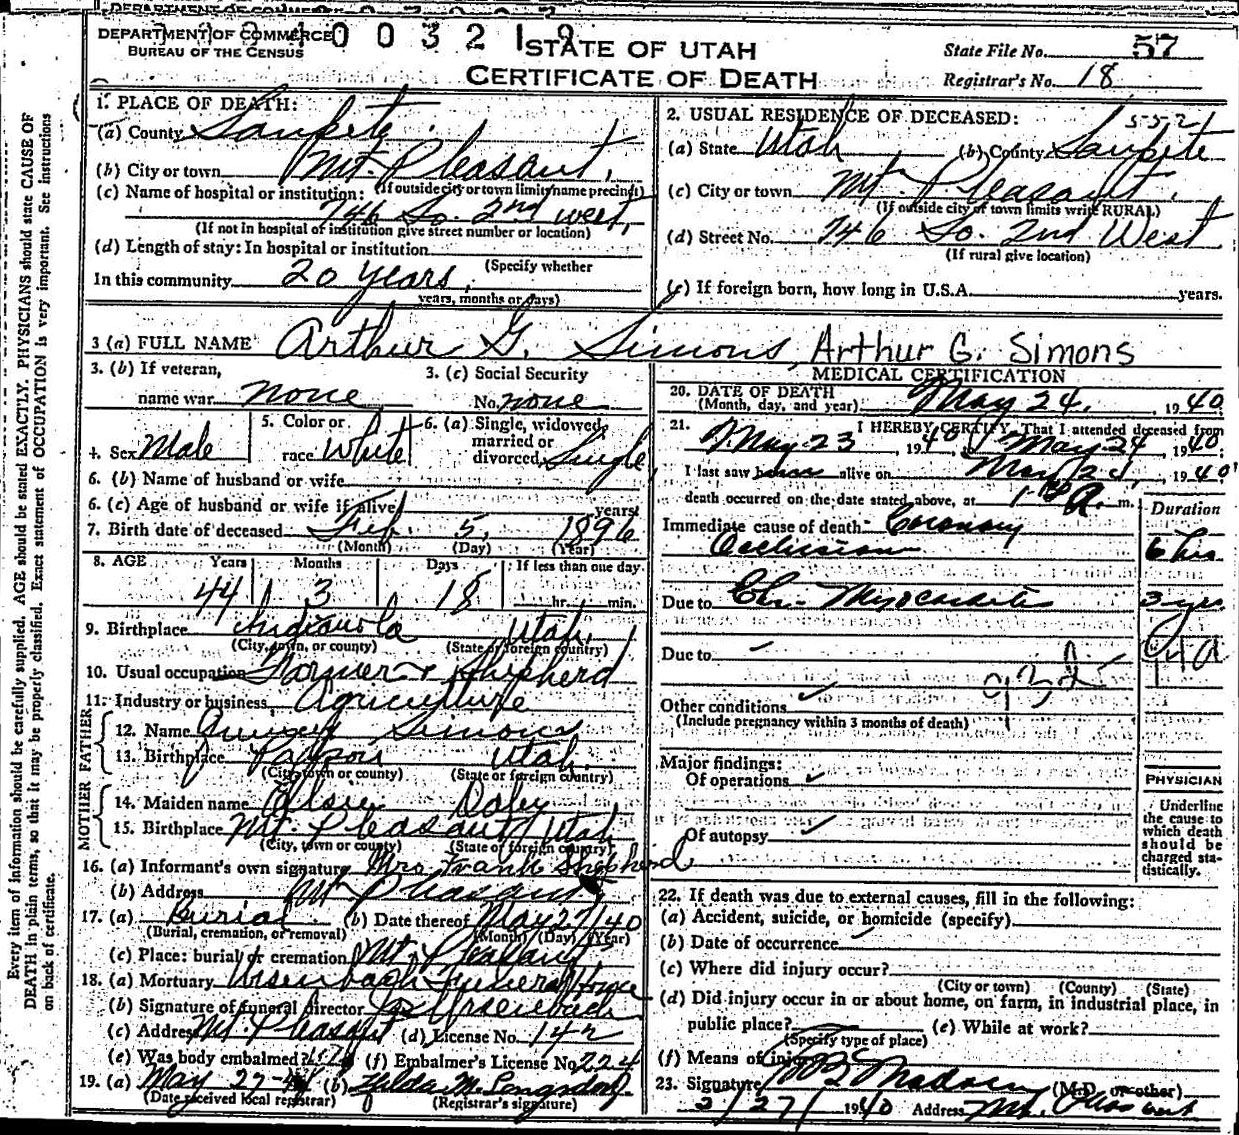 DEPARTMENT OF COMMERCE
BUREAU OF THE CENSUS
STATE OF UTAH
CERTIFICATE OF DEATH
State File No. 57
Registrar's No. 18
Every item of information should be carefully supplied. AGE should be stated EXACTLY. PHYSICIANS should state CAUSE OF
DEATH in plain terms, so that it may be properly classified. Exact statement of OCCUPATION is very important. See instructions
on back of certificate.
1. PLACE OF DEATH:
(a) County Sanpete
(b) City or town Mt. Pleasant,
(If outside city or town limits name precinct)
(c) Name of hospital or institution:
746 So. 2nd West,
(If not in hospital or institution give street number or location)
(d) Length of stay: In hospital or institution
(Specify whether
In this community 20 years,
years, months or days)
2. USUAL RESIDENCE OF DECEASED:
(a) State Utah (b) County Sanpete
(c) City or town Mt. Pleasant,
(If outside city or town limits write RURAL)
(d) Street No. 746 So. 2nd West
(If rural give location)
(e) If foreign born, how long in U.S.A. years.
3 (a) FULL NAME Arthur G. Simons, Arthur G. Simons
3. (b) If veteran,
name war none
3. (c) Social Security
No. none
4. Sex Male
5. Color or
race White
6. (a) Single, widowed,
married or
divorced, Single
6. (b) Name of husband or wife
6. (c) Age of husband or wife if alive years
7. Birth date of deceased Feb. 5, 1896
(Month) (Day) (Year)
8. AGE Years Months Days If less than one day
44 3 18 hr. min.
9. Birthplace Indianola Utah,
(City, town, or county) (State or foreign country)
10. Usual occupation Farmer + Shepherd
11. Industry or business, Agriculture
FATHER
12. Name Simons
13. Birthplace Payson Utah.
(City, town or county) (State or foreign country)
MOTHER
14. Maiden name Elsie Daley
15. Birthplace Mt. Pleasant, Utah
(City, town or county) (State or foreign country)
16. (a) Informant's own signature Mrs. Frank Shepherd
(b) Address Mt Pleasant
17. (a) Burial (b) Date thereof May 27/40
(Burial, cremation, or removal) (Month) (Day) (Year)
(c) Place: burial or cremation Mt. Pleasant
18. (a) Mortuary Ursenbach Funeral Home
(b) Signature of funeral director Ursenbach
(c) Address Mt. Pleasant (d) License No. 142
(e) Was body embalmed? (f) Embalmer's License No. 224
19. (a) May 27-40 (b) Hilda M.
(Date received local registrar) (Registrar's signature)
MEDICAL CERTIFICATION
20. DATE OF DEATH
(Month, day, and year) May 24, 1940
21. I HEREBY CERTIFY, That I attended deceased from
May 23, 1940, May 24, 1940;
I last saw alive on May 24, 1940
death occurred on the date stated above, at a. m.
Duration
Immediate cause of death Coronary
Occlusion 6 hrs
Due to Chr. Myocarditis 3 yrs
94a
Due to
Other conditions
(Include pregnancy within 3 months of death)
Major findings:
Of operations
Of autopsy
PHYSICIAN
Underline
the cause to
which death
should be
charged sta-
tistically.
22. If death was due to external causes, fill in the following:
(a) Accident, suicide, or homicide (specify)
(b) Date of occurrence
(c) Where did injury occur?
(City or town) (County) (State)
(d) Did injury occur in or about home, on farm, in industrial place, in
public place? (e) While at work?
(Specify type of place)
(f) Means of injury
23. Signature Madsen (M.D. or other)
5/27/1940 Address Mt. Pleasant